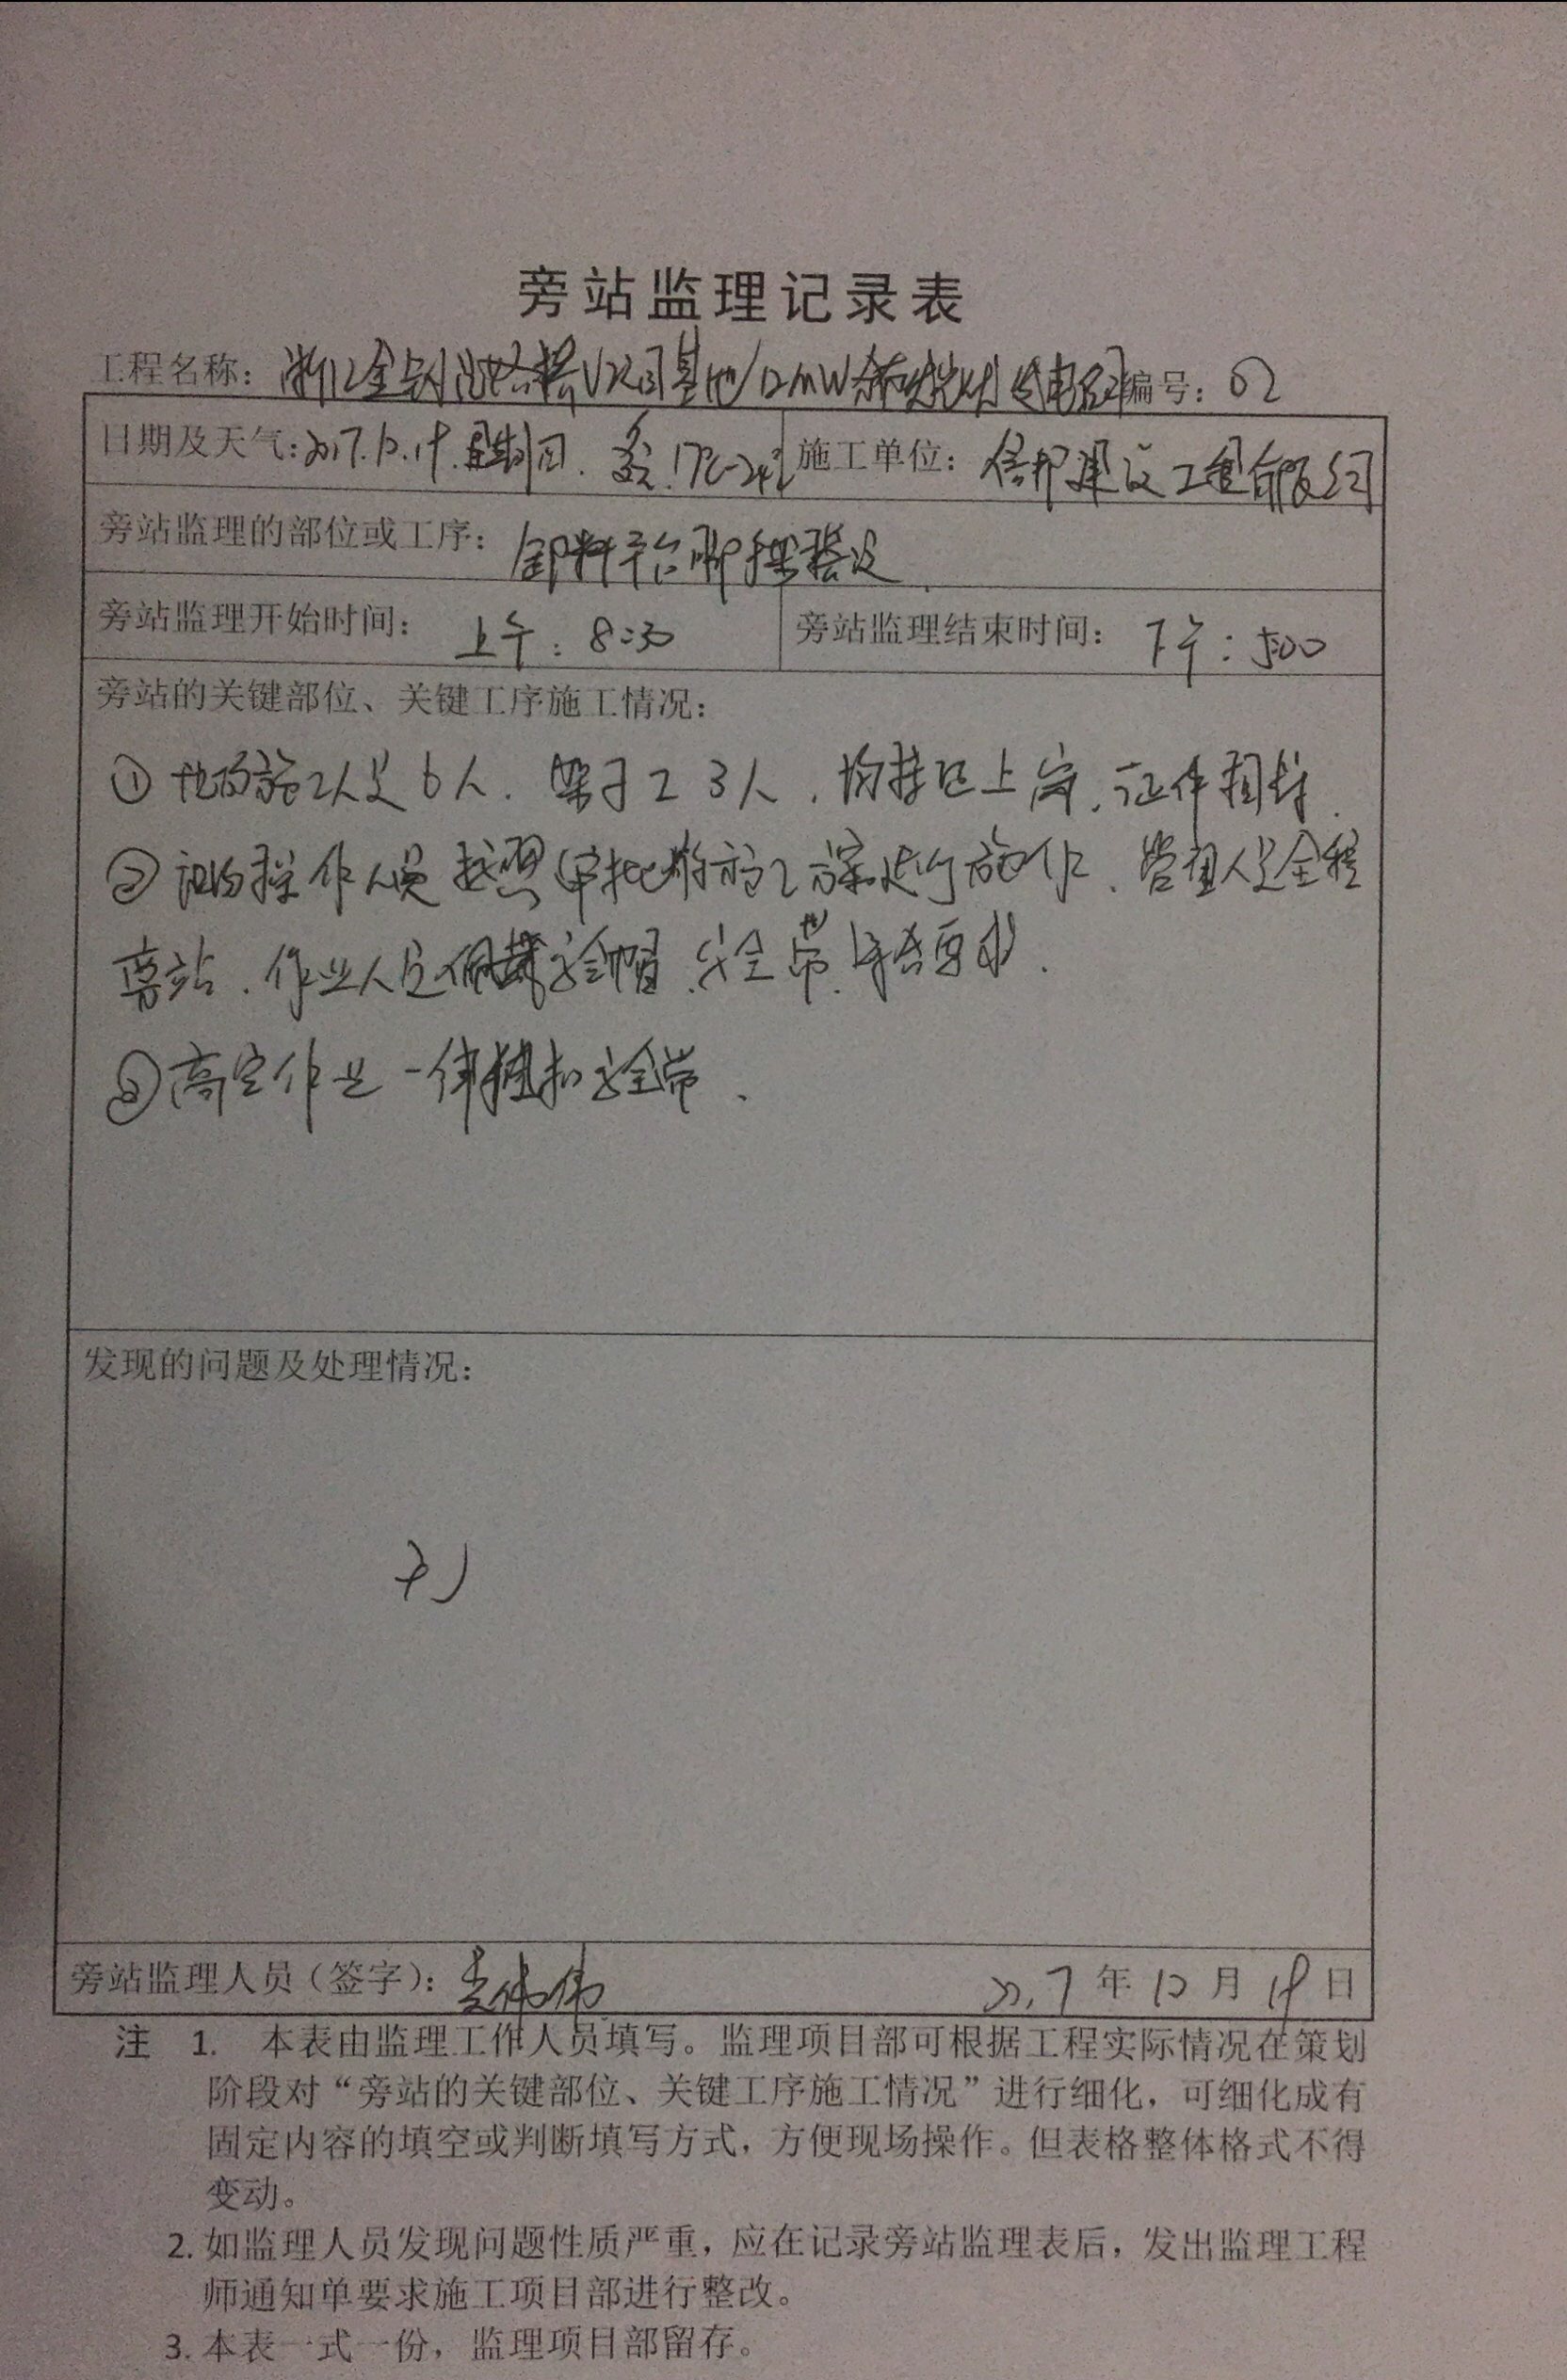 旁站监理记录表
工程名称：浙江金 基地12MW分布式光伏发电项目 编号：02
日期及天气：2017. .19.星期四. 多云.17℃-24℃ 施工单位：信邦建设工程有限公司
旁站监理的部位或工序：卸料平台脚手架搭设
旁站监理开始时间：上午：8:30 旁站监理结束时间：下午：5:00
旁站的关键部位、关键工序施工情况：
① 施工人员6人．架子工3人，均持证上岗，证件相符．
② 操作人员按照审批 施工方案进行施工作．管理人员全程
旁站．作业人员佩戴安全帽．安全带．符合要求．
③高空作业一律 扣安全带．
发现的问题及处理情况：
无
旁站监理人员（签字）： 伟伟 2017年 月19日
注 1. 本表由监理工作人员填写。监理项目部可根据工程实际情况在策划
阶段对“旁站的关键部位、关键工序施工情况”进行细化，可细化成有
固定内容的填空或判断填写方式，方便现场操作。但表格整体格式不得
变动。
2. 如监理人员发现问题性质严重，应在记录旁站监理表后，发出监理工程
师通知单要求施工项目部进行整改。
3. 本表一式一份，监理项目部留存。